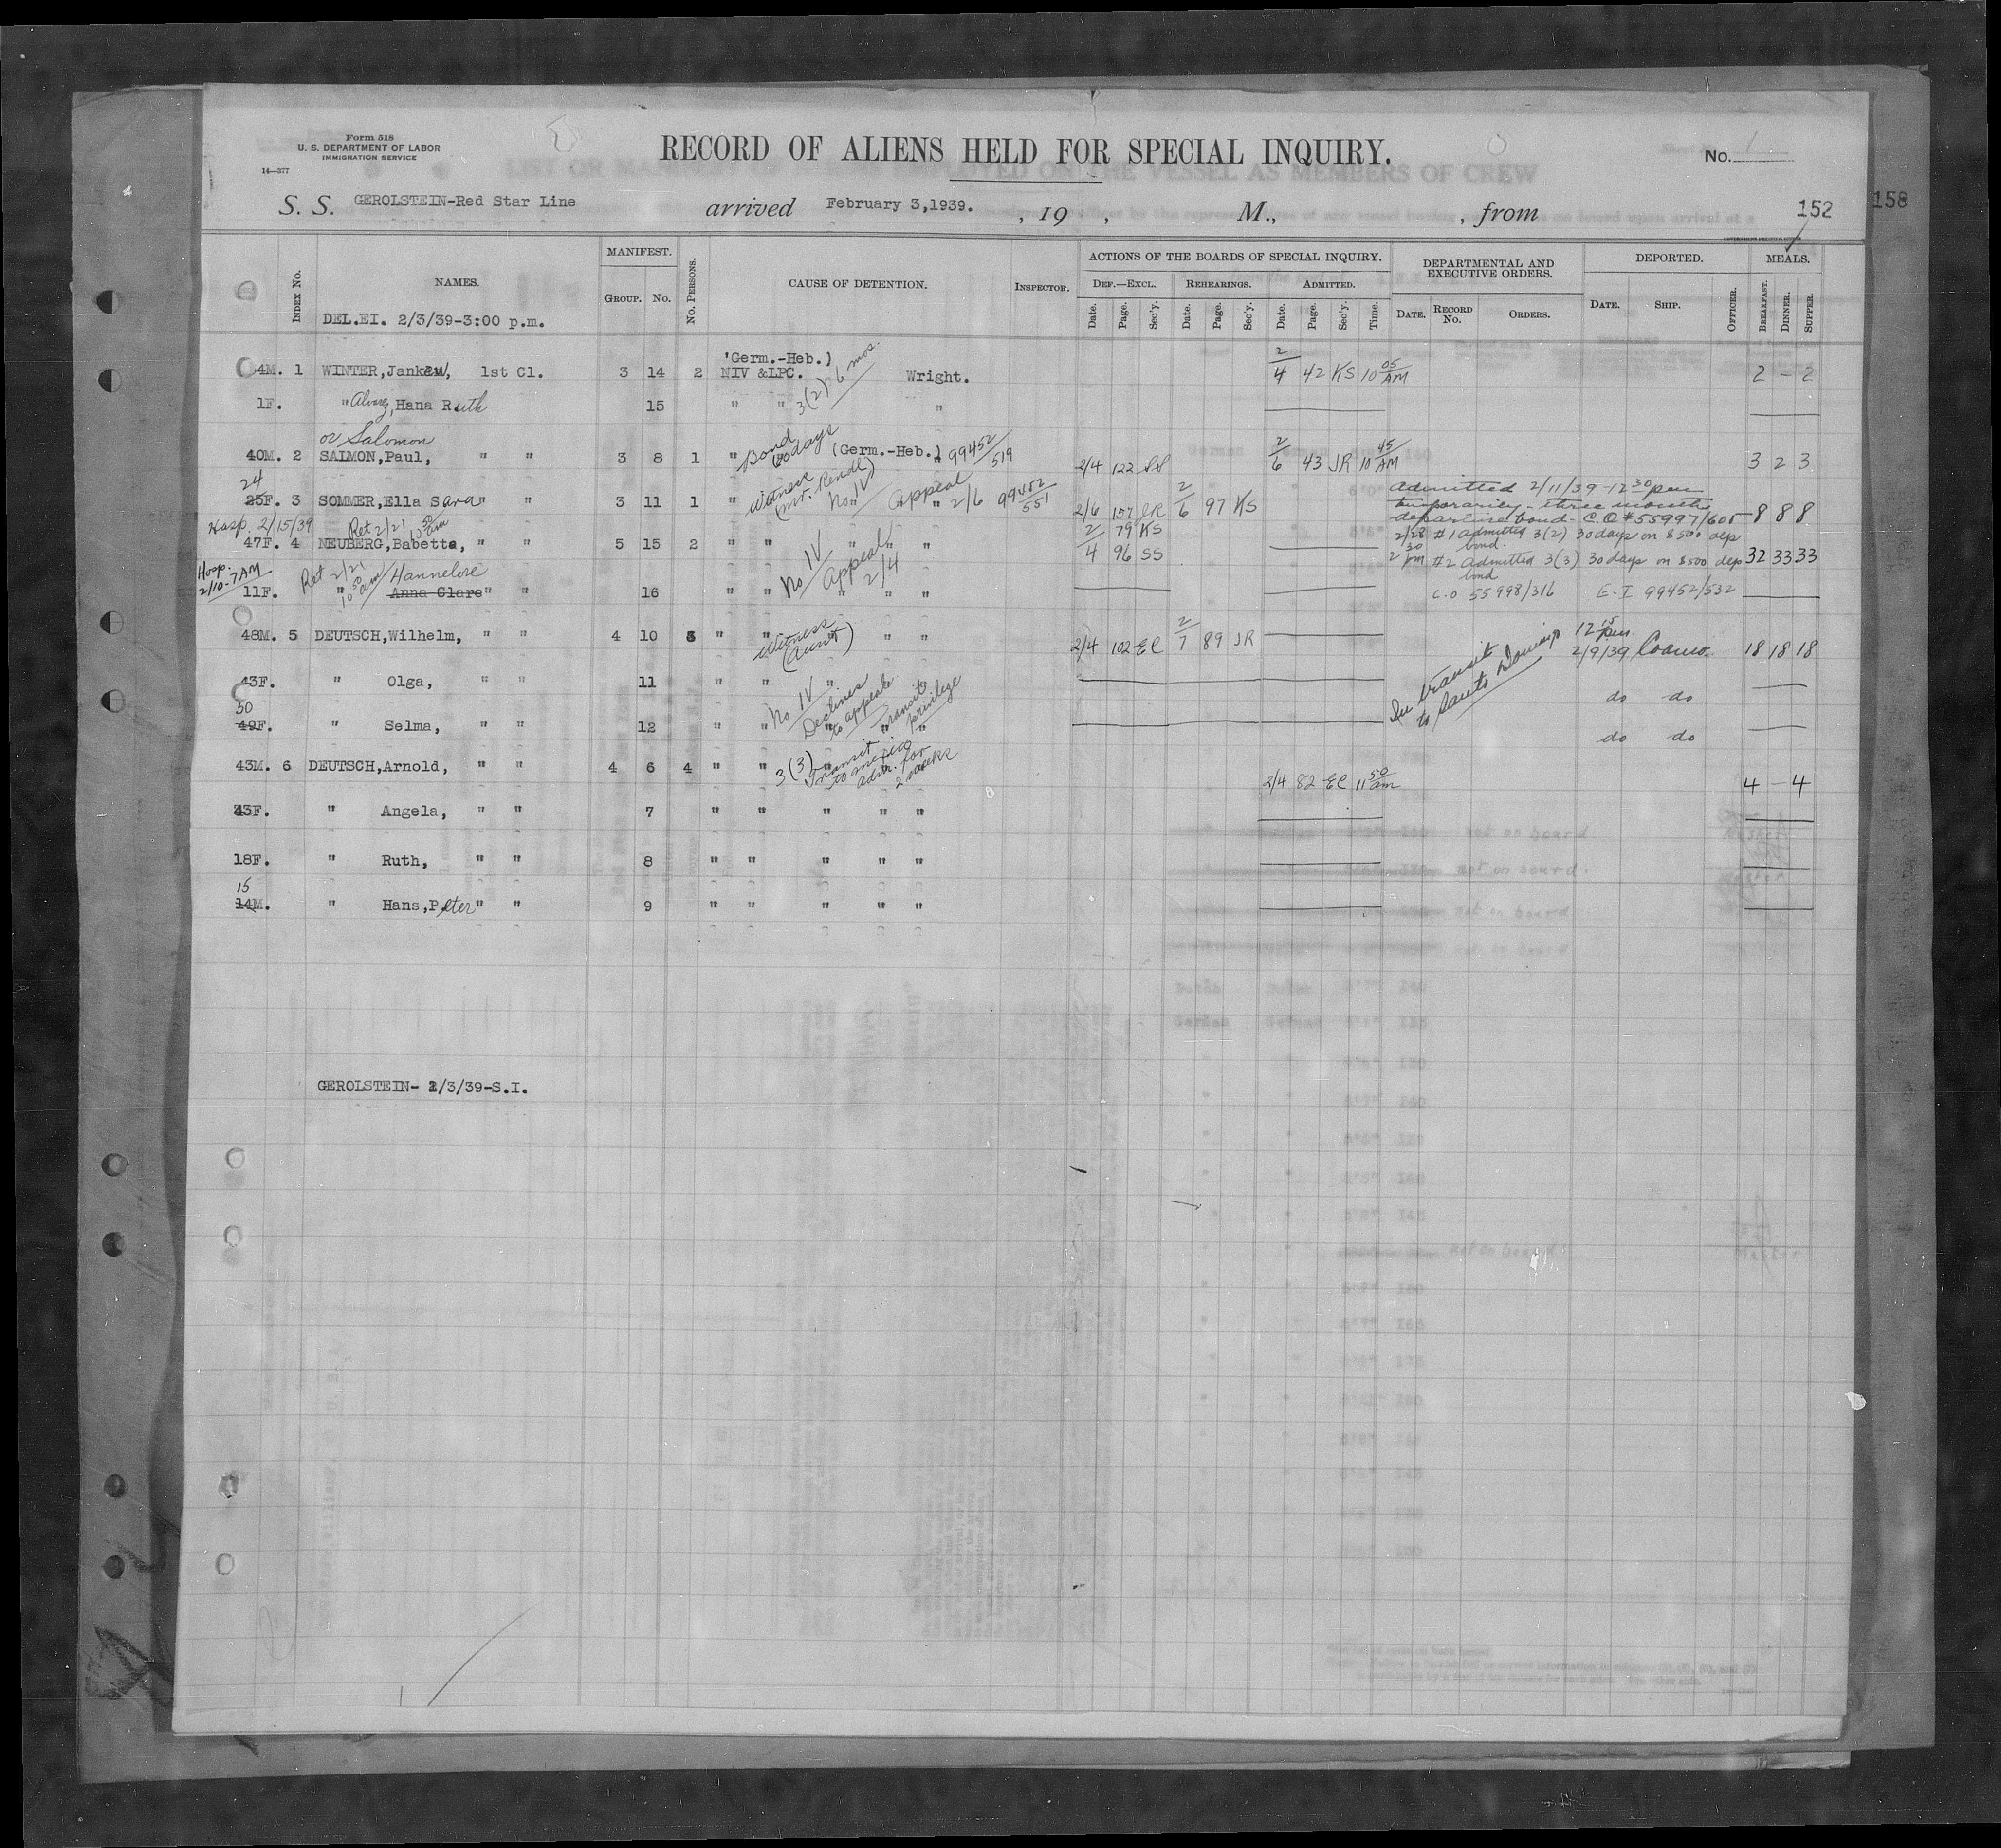 Form 518
U. S. DEPARTMENT OF LABOR
IMMIGRATION SERVICE
14—377
RECORD OF ALIENS HELD FOR SPECIAL INQUIRY.
No. 1
S. S. GEROLSTEIN-Red Star Line arrived February 3,1939. , 19 , M., , from 152 158
INDEX No. NAMES. MANIFEST. GROUP. No. No. PERSONS. CAUSE OF DETENTION. INSPECTOR. ACTIONS OF THE BOARDS OF SPECIAL INQUIRY. DEF.—EXCL. Date. Page. Sec'y. REHEARINGS. Date. Page. Sec'y. ADMITTED. Date. Page. Sec'y. Time. DEPARTMENTAL AND EXECUTIVE ORDERS. DATE. RECORD No. ORDERS. DEPORTED. DATE. SHIP. OFFICER. MEALS. BREAKFAST. DINNER. SUPPER.
DEL.EI. 2/3/39-3:00 p.m.
(Germ.-Heb.)
4M. 1 WINTER, 1st Cl. 3 14 2 NIV &LPC. 3(2) 6 mos. Wright. 2/4 42 KS 10 05 AM 2 - 2
1F. " Hana Ruth 15 " " "
or Salomon
40M. 2 SALMON,Paul, " " 3 8 1 " Bond 60 days (Germ.-Heb.) " 99452/519 2/4 122 SS 2/6 43 JR 10 45 AM 3 2 3
24
25F. 3 SOMMER,Ella Sara " " 3 11 1 " Witness No IV Appeal 2/6 " 99452/551 2/6 157 2/6 97 KS Admitted 2/11/39-12 30 pm temporarily - three months departure bond - C.O # 55997/605 8 8 8
Hosp. 2/15/39 Ret 2/21 10 50 am
47F. 4 NEUBERG,Babette, " " 5 15 2 " " " " " 2/4 79 KS 96 SS 2/28 2 30 pm #1 admitted 3(2) 30 days on $500 dep bond.
#2 admitted 3(3) 30 days on $500 dep bond 32 33 33
Hosp. 2/10-7AM Ret 2/21 10 50 am Hannelore
11F. " Anna Clare " " 16 " " No IV Appeal 2/4 " " " C.O 55998/316 E.I 99452/532
48M. 5 DEUTSCH,Wilhelm, " " 4 10 " " Witness (Aunt) " " 2/4 102 EC 2/7 89 JR In transit to Santo Domingo 12 15 pm 2/9/39 Coamo 18 18 18
43F. " Olga, " " 11 " " " do do
50
49F. " Selma, " " 12 " " No IV Declines to appeal " Transit privilege " do do
43M. 6 DEUTSCH,Arnold, " " 4 6 4 " " 3(3) Transit to mexico adm. for 2 weeks 2/4 82 EC 11 50 am 4 - 4
43F. " Angela, " " 7 " " " " "
18F. " Ruth, " " 8 " " " " "
15
14M. " Hans,Peter " " 9 " " " " "
GEROLSTEIN- 2/3/39-S.I.